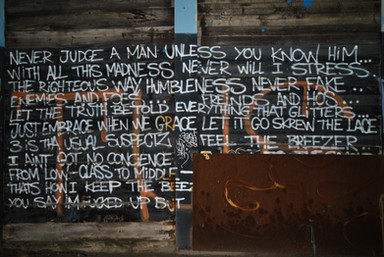 NEVER JUDGE A MAN UNLESS YOU KNOW HIM...
WITH ALL THIS MADNESS NEVER WILL I STRESS
THE RIGHTEOUS WAY HUMBLENESS NEVER FAKE...
ENEMIES AND FOES FRIENDS AND HOS...
LET THE TRUTH BE TOLD EVERYTHING THAT GLITTERS
JUST EMBRACE WHEN WE GRACE LET GO SKREW THE LACE
3 IS THA USUAL FEEL THE BREEZER
I AINT GOT NO CONCIENCE
FROM LOW-CLASS TO MIDDLE
THATS HOW I KEEP THE
YOU SAY IM UP BUT